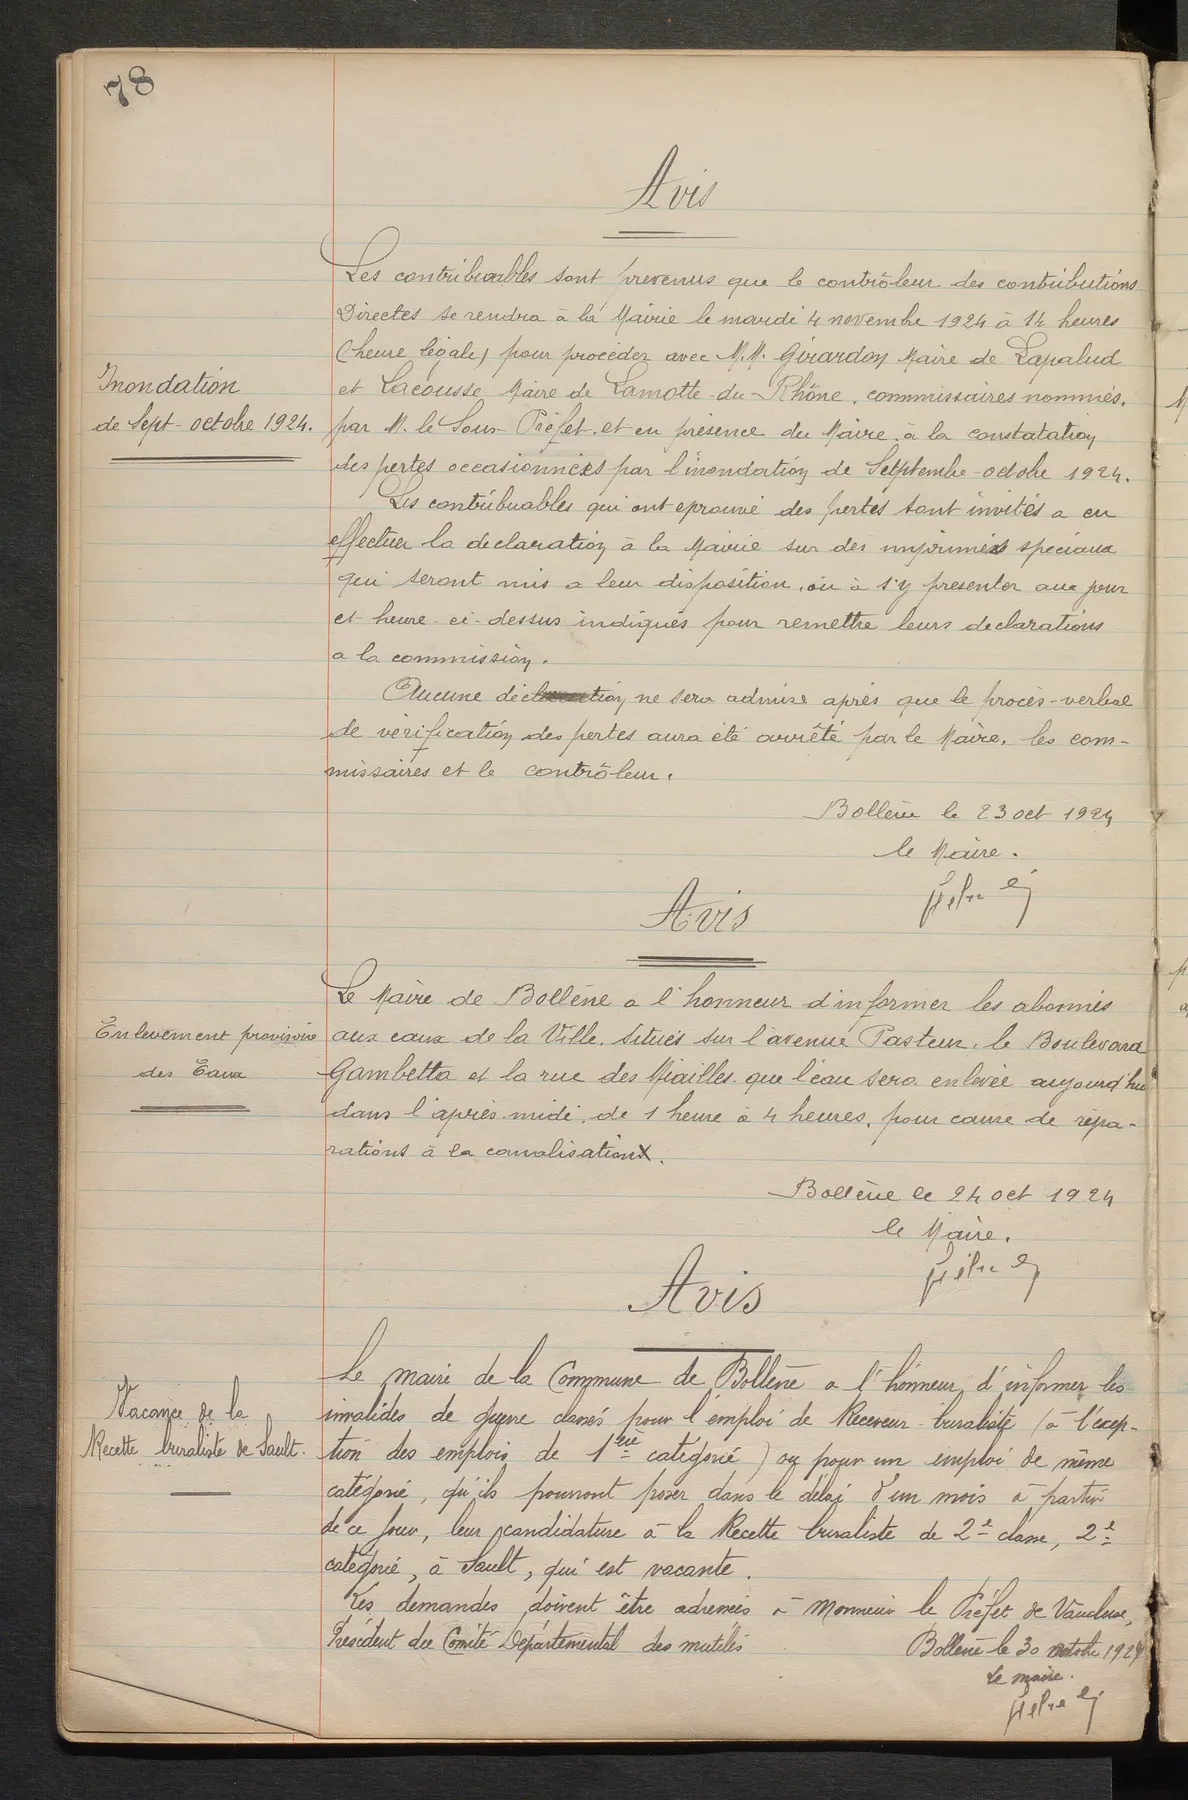 78
Avis
Les contribuables sont prevenus que le contrôleur des contributions
Directes se rendra à la Mairie le mardi 4 novembre 1924 à 14 heures
(heure légale) pour procéder avec M.M. Girardon Maire de Lapalud
Inondation
et Lacousse Maire de Lamotte-du-Rhône, commissaires nommés.
de Sept-octobre 1924.
par M. le Sous-Préfet, et en présence du Maire, à la constatation
des pertes occasionnées par l'inondation de Setptembre-octobre 1924.
Les contribuables qui ont eprouvé des pertes sont invités a en
effectuer la declaration à la Mairie sur des imprimés speciaux
qui seront mis a leur disposition, ou à s'y presenter aux jour
et heure ci-dessus indiqués pour remettre leurs declarations
a la commission.
Aucune déclaration ne sera admise après que le procès-verbal
de vérification des pertes aura été arrêté par le Maire, les com-
missaires et le contrôleur.
Bollène le 23 oct 1924
le Maire.
Avis
Le Maire de Bollène a l'honneur d'informer les abonnés
Enlevement provisoire
aux eaux de la Ville, situés sur l'avenue Pasteur, le Boulevard
des Eaux
Gambetta et la rue des Miailles que l'eau sera enlevée aujourd'hui
dans l'après-midi, de 1 heure à 4 heures, pour cause de répa-
rations à la canalisation.
Bollène le 24 oct 1924
le Maire.
Avis
Le maire de la Commune de Bollène a l'honneur d'informer les
Vacance de la
invalides de guerre classés pour l'emploi de Receveur-buraliste (à l'excep-
Recette buraliste de Sault.
tion des emplois de 1ère catégorie) ou pour un emploi de même
catégorie, qu'ils pourront poser dans le délai d'un mois à partir
de ce jour, leur candidature à la Recette buraliste de 2e classe, 2e
catégorie, à Sault, qui est vacante.
Les demandes doivent être adressées à Monsieur le Préfet de Vaucluse,
Président du Comité Départemental des mutilés
Bollène le 30 octobre 1924
Le maire.